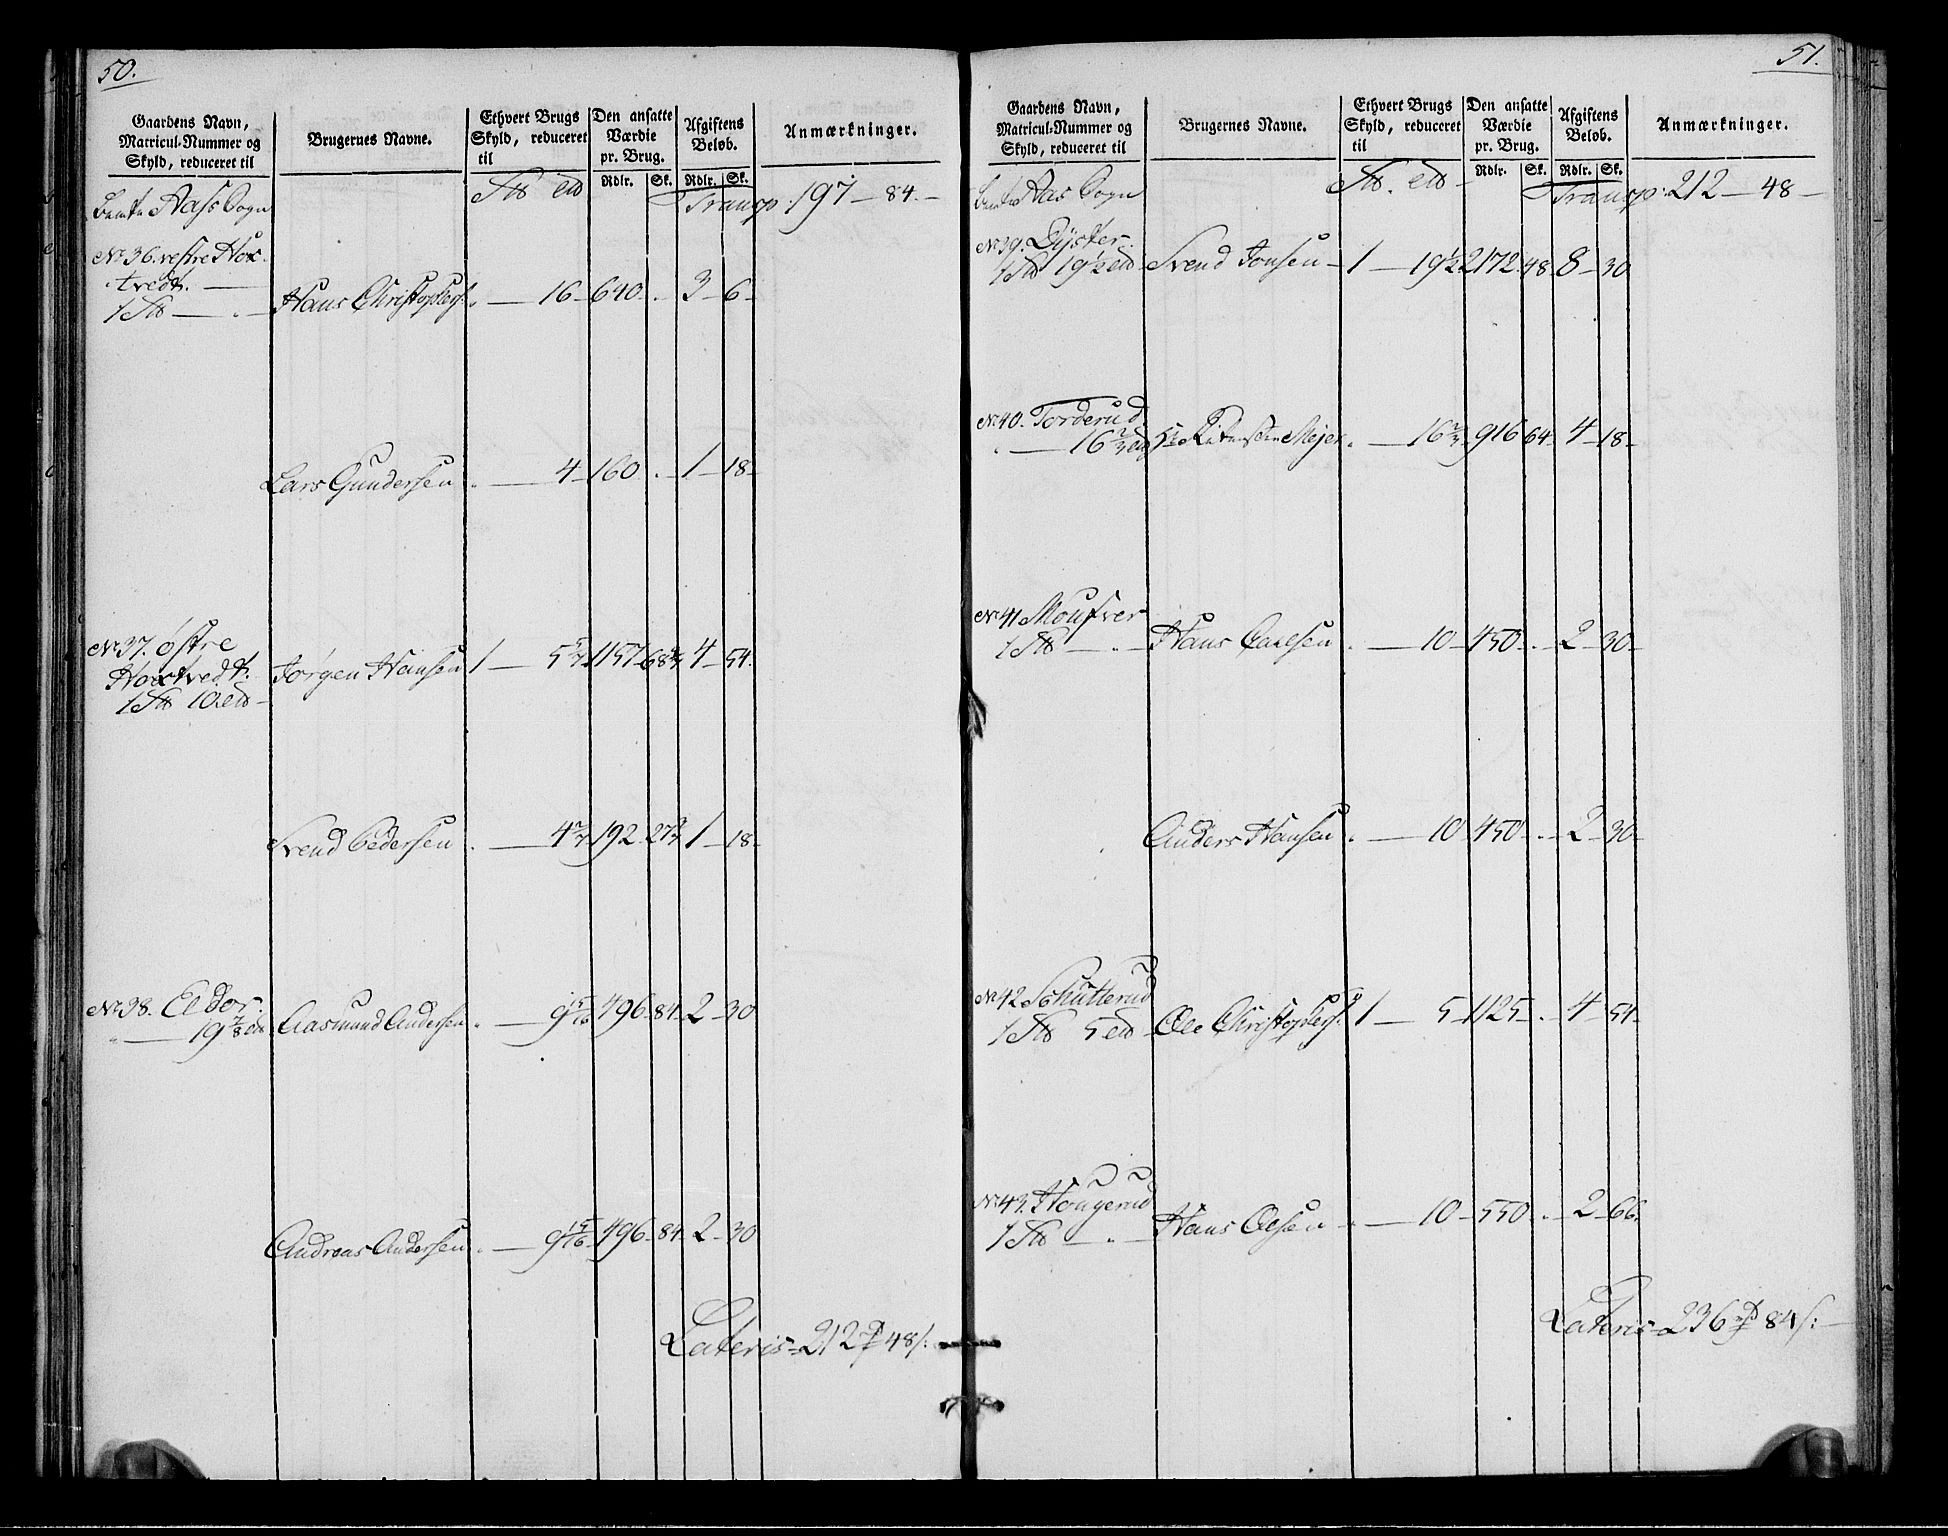 50.
Gaardens Navn, Matricul-Nummer og Skyld, reduceret til
Brugernes Navne.
Ethvert Brugs Skyld, reduceret til
Den ansatte Værdie pr. Brug.
Afgiftens Beløb.
Anmærkninger.
Rdlr. Sk. Rdlr. Sk.
Aass Sogn Transp: 197 — 84. —
No 36. vestre Hox-
tvedt. —
1 — " — Hans Christophers. " — 16 — 640 . " 3 — 6 —
Lars Gundersen " — 4 — 160 . " 1 — 18 —
No 37. østre
Hoxtvedt. Jørgen Hansen 1 — 5 5/7 1157 68 4/7 4 — 54.
1 10
Svend Pedersen . — 4 2/7 192 27 3/7 1 — 18 —
No 38. Eldor.
" — 19 7/8 Aasmund Andersen " — 9 15/16 496 84 2 — 30
Andreas Andersen " — 9 15/16 496 84 2 — 30
Lateris 212 48 /:
51.
Gaardens Navn, Matricul-Nummer og Skyld, reduceret til
Brugernes Navne.
Ethvert Brugs Skyld, reduceret til
Den ansatte Værdie pr. Brug.
Afgiftens Beløb.
Anmærkninger.
Rdlr. Sk. Rdlr. Sk.
Aas Sogn Transp: 212 — 48 —
No 39. Dÿster.
1 19 1/2 Svend Jonsen — 1 — 19 1/2 2172 48 8 — 30
No 40. Torderud
" — 16 2/3 Mejer " — 16 2/3 916 64 4 — 18 —
No 41 Mousver
1 — " — Hans Carlsen . — 10 — 450 . 2 — 30 —
Anders Hansen . — 10 — 450 . 2 — 30 —
No 42 Schutterud
1 5 Ole Christophers. 1 — 5 — 1125 . 4 — 54 —
No 43. Hougerud
1 — " — Hans Olsen " — 10 — 550 . 2 — 66.
Lateris 236 84 /: —